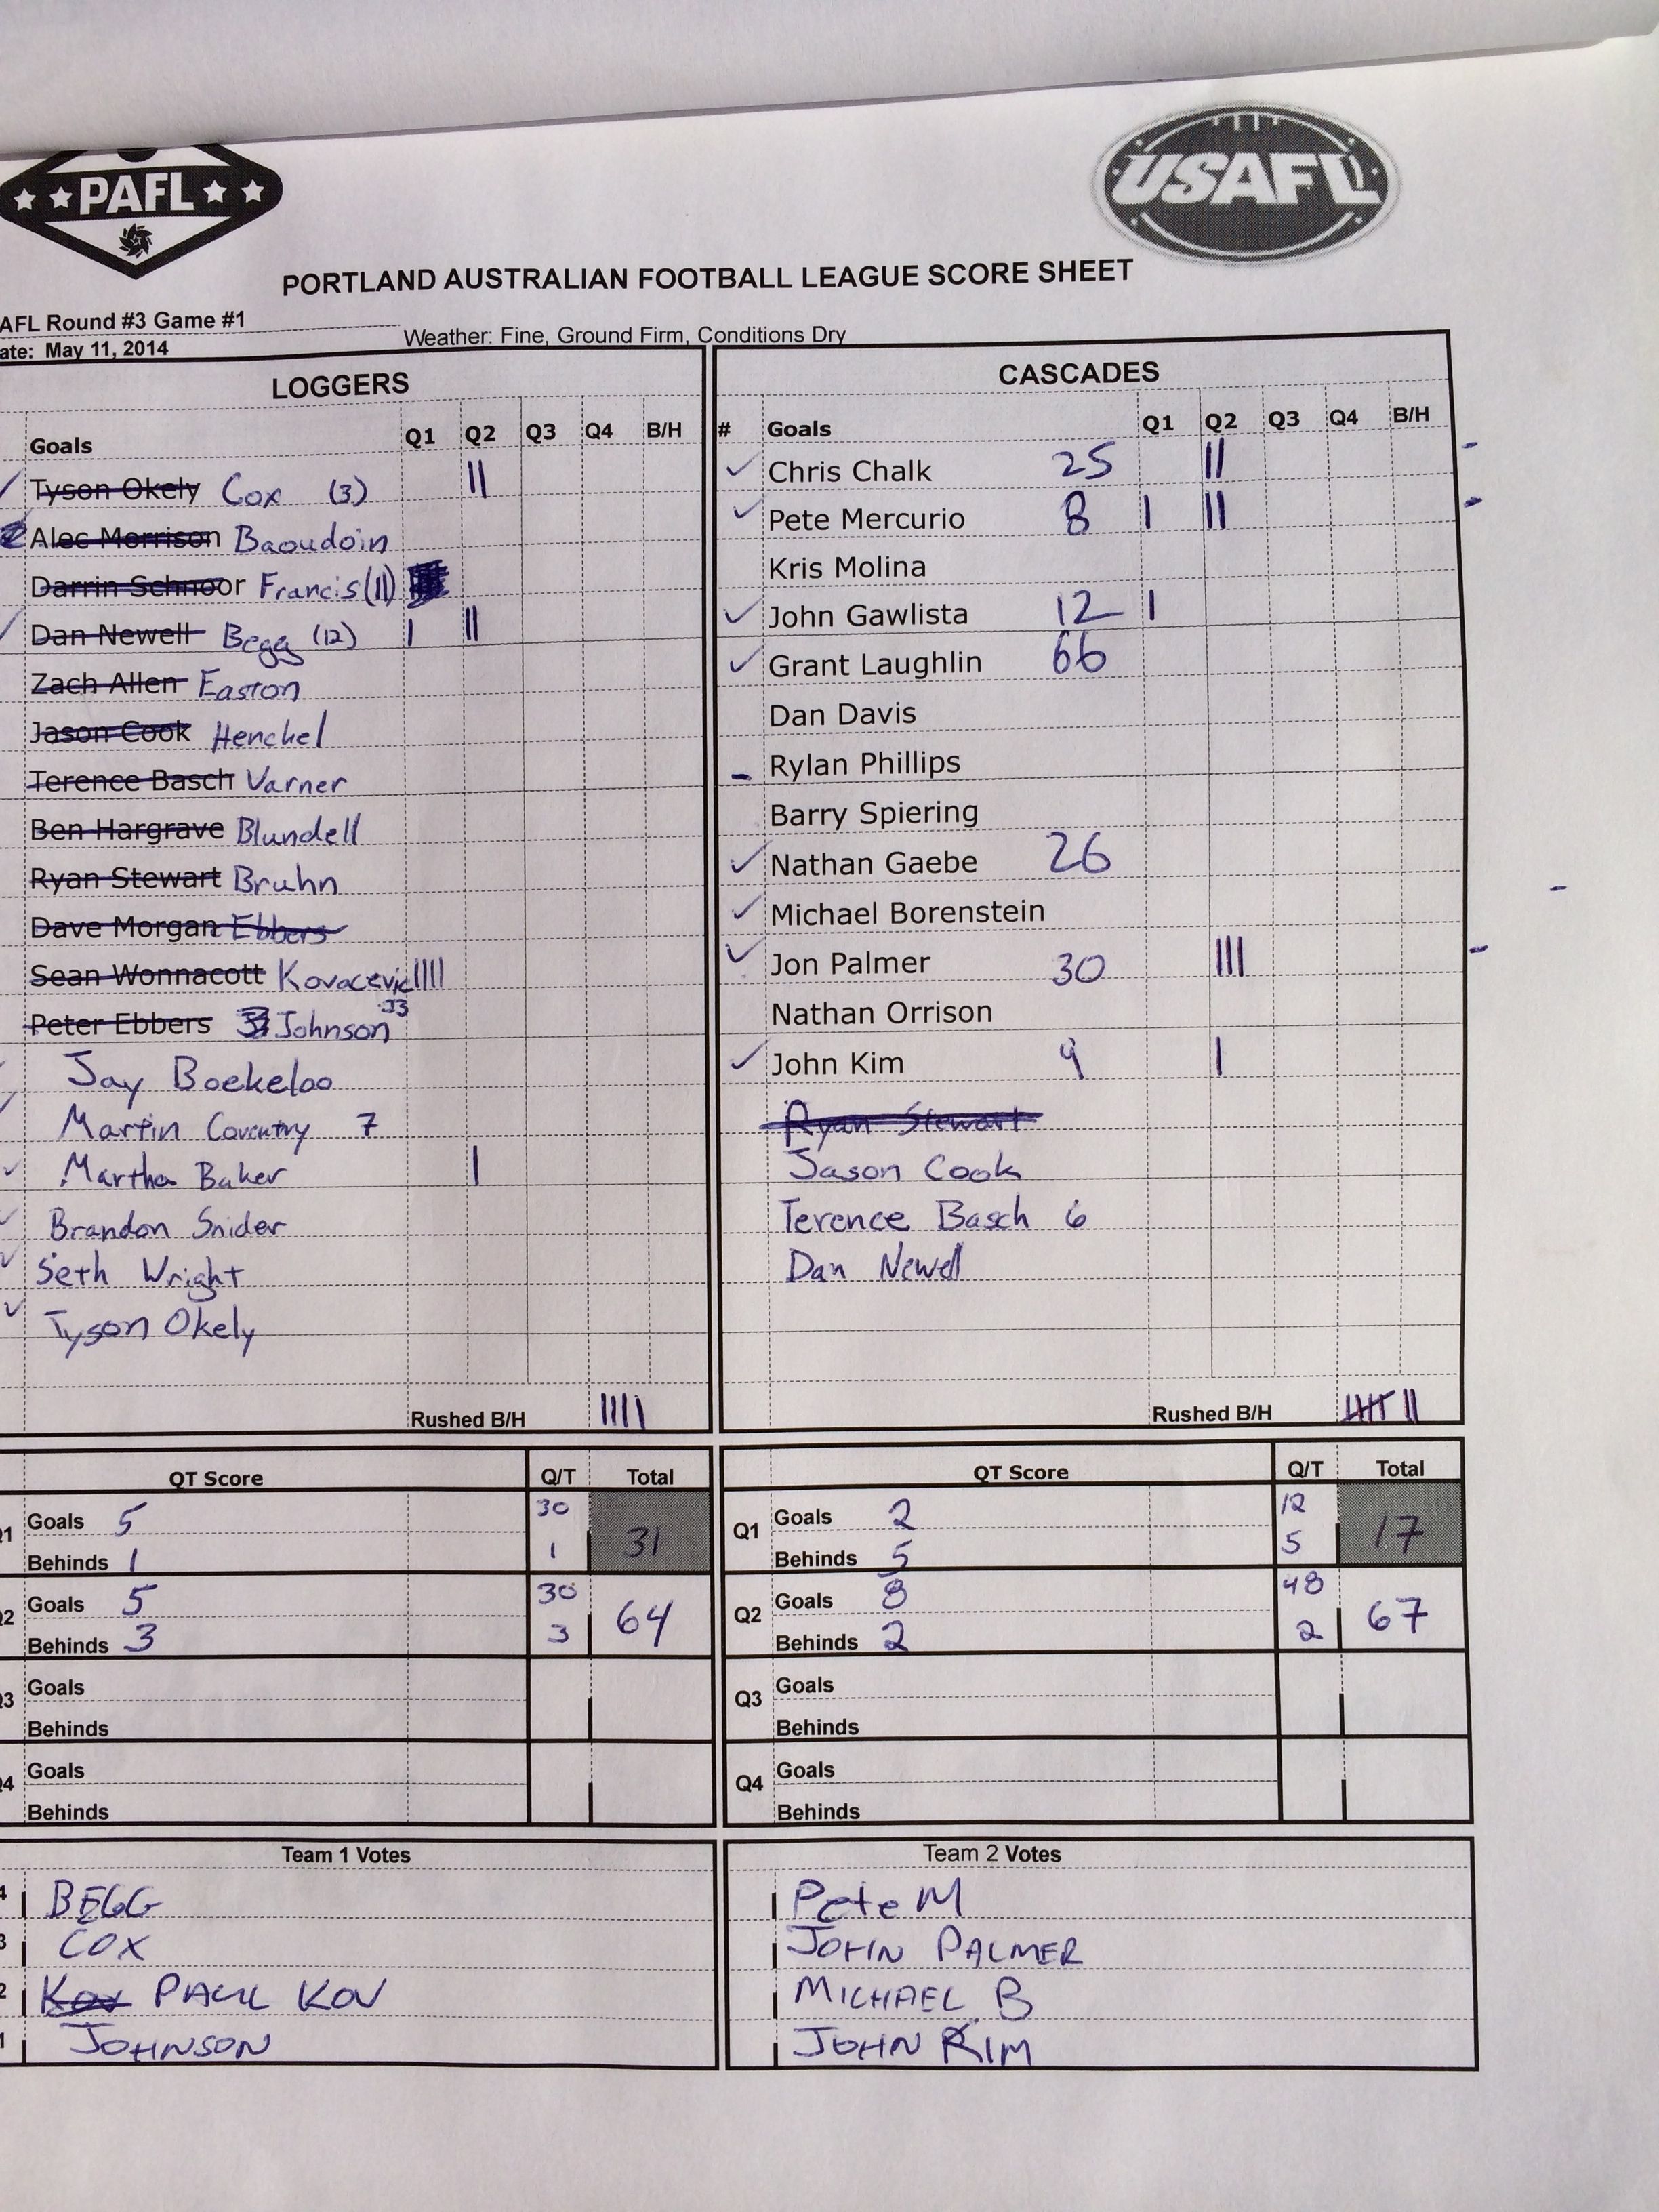 PAFL
USAFL
PORTLAND AUSTRALIAN FOOTBALL LEAGUE SCORE SHEET
AFL Round #3 Game #1
ate: May 11, 2014
Weather: Fine, Ground Firm, Conditions Dry
LOGGERS
Goals Q1 Q2 Q3 Q4 B/H
Tyson Okely Cox (3) ||
Alec Morrison Baoudoin
Darrin Schnoor Francis (11)
Dan Newell Begg (12) | ||
Zach Allen Easton
Jason Cook Henckel
Terence Basch Varner
Ben Hargrave Blundell
Ryan Stewart Bruhn
Dave Morgan Ebbers
Sean Wonnacott Kovacevic ||||
Peter Ebbers Johnson 33
Jay Boekeloo
Martin Coventry 7
Martha Baker |
Brandon Snider
Seth Wright
Tyson Okely
Rushed B/H ||||
CASCADES
# Goals Q1 Q2 Q3 Q4 B/H
Chris Chalk 25 ||
Pete Mercurio 8 | ||
Kris Molina
John Gawlista 12 |
Grant Laughlin 66
Dan Davis
Rylan Phillips
Barry Spiering
Nathan Gaebe 26
Michael Borenstein
Jon Palmer 30 |||
Nathan Orrison
John Kim 9 |
Ryan Stewart
Jason Cook
Terence Basch 6
Dan Newell
Rushed B/H |||| ||
QT Score Q/T Total
Q1 Goals 5 30
Behinds 1 1 31
Q2 Goals 5 30
Behinds 3 3 64
Q3 Goals
Behinds
Q4 Goals
Behinds
QT Score Q/T Total
Q1 Goals 2 12
Behinds 5 5 17
Q2 Goals 8 48
Behinds 2 2 67
Q3 Goals
Behinds
Q4 Goals
Behinds
Team 1 Votes
4 BEGG
3 COX
2 Kov PAUL KOV
1 JOHNSON
Team 2 Votes
Pete M
JOHN PALMER
MICHAEL B
JOHN KIM